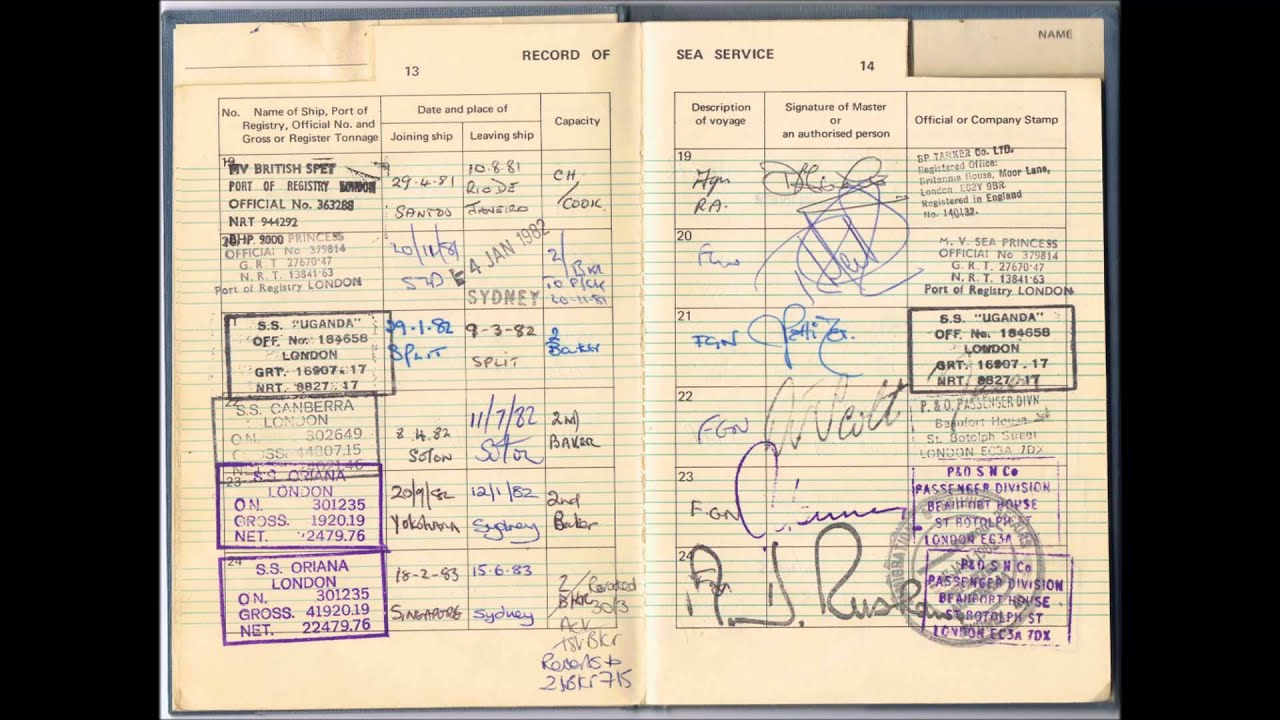 RECORD OF SEA SERVICE
NAME
13
14
No. Name of Ship, Port of Registry, Official No. and Gross or Register Tonnage
Date and place of
Joining ship
Leaving ship
Capacity
Description of voyage
Signature of Master or an authorised person
Official or Company Stamp
19
MV BRITISH SPEY
PORT OF REGISTRY LONDON
OFFICIAL No. 363288
NRT 944292
BHP 9000
29.4.81
SANTOS
10.8.81
RIO DE
JANEIRO
CH
/COOK
19
Fgn
RA.
BP TANKER Co. LTD.
Registered Office:
Britannic House, Moor Lane,
London EC2Y 9BR
Registered in England
No. 140132.
20
PRINCESS
OFFICIAL No 379814
G. R. T. 27670·47
N. R. T. 13841·63
Port of Registry LONDON
20/11/81
SYD
4 JAN 1982
SYDNEY
2/
BKR
TO
20-11-81
20
M. V. SEA PRINCESS
OFFICIAL No 379814
G. R. T. 27670·47
N. R. T. 13841·63
Port of Registry LONDON
S.S. "UGANDA"
OFF. No: 184658
LONDON
GRT. 16907 . 17
NRT. 8827 . 17
29.1.82
SPLIT
9-3-82
SPLIT
2
Baker
21
FGN
S.S. "UGANDA"
OFF. No. 184658
LONDON
GRT. 16907 . 17
NRT. 8827 . 17
22
S.S. CANBERRA
LONDON
O.N. 302649
GROSS. 44807.15
8.4.82
SOTON
11/7/82
SOTON
2ND
BAKER
22
FGN
P. & O. PASSENGER DIVN
Beaufort House
St. Botolph Street
LONDON EC3A 7DX
23
S.S. ORIANA
LONDON
O.N. 301235
GROSS. 1920.19
NET. 22479.76
20/9/82
Yokohama
12/1/82
Sydney
2nd
Baker
23
FGN
P&O S N Co
PASSENGER DIVISION
BEAUFORT HOUSE
ST BOTOLPH ST
LONDON EC3A
24
S.S. ORIANA
LONDON
O.N. 301235
GROSS. 41920.19
NET. 22479.76
18-2-83
SINGAPORE
15.6.83
Sydney
2/
BKR
30/3
Ack
Reverts to
2/Bkr 7/5
24
Fgn
P&O S N Co
PASSENGER DIVISION
BEAUFORT HOUSE
ST BOTOLPH ST
LONDON EC3A 7DX